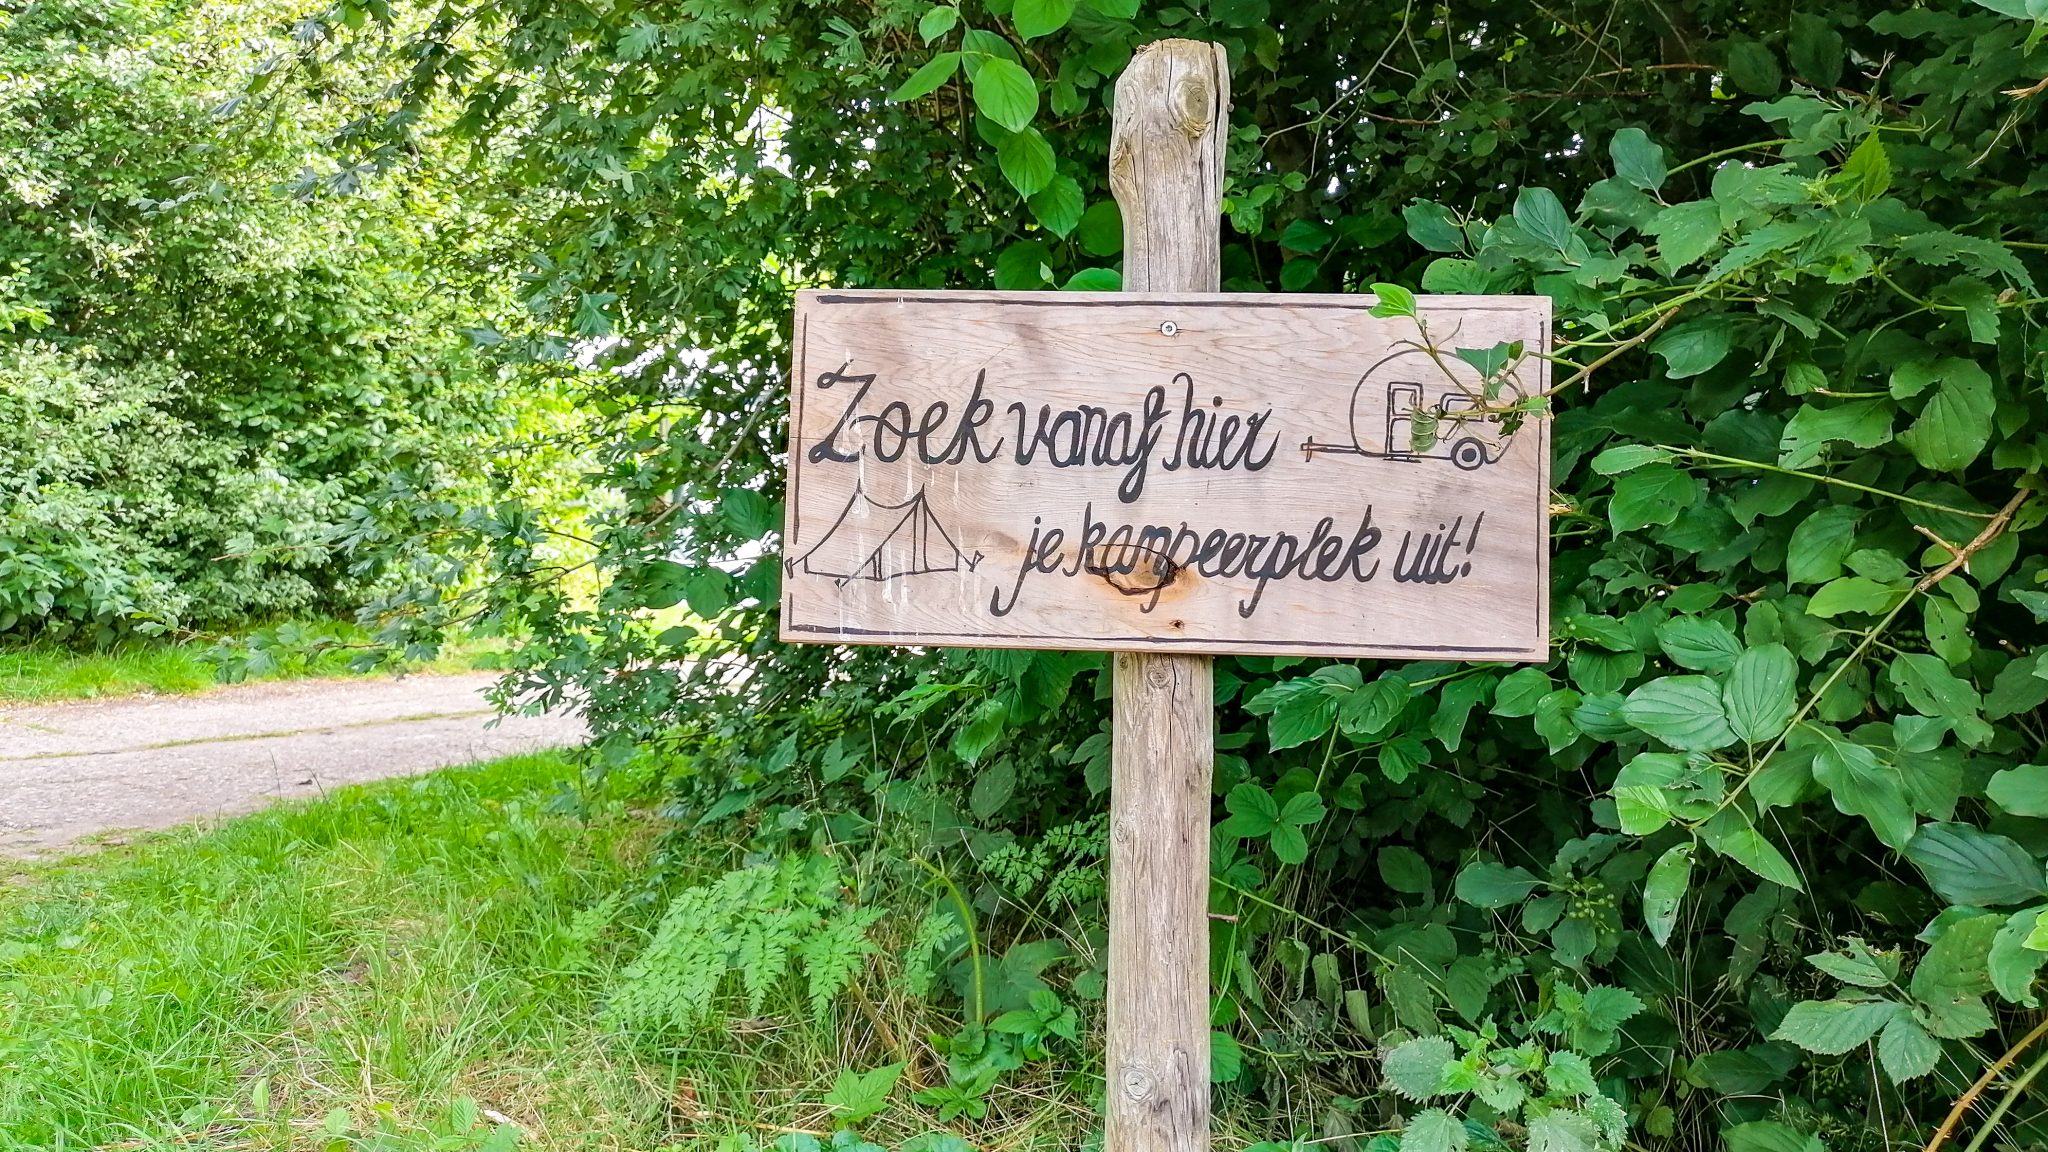 Zoek vanaf hier
je kampeerplek uit!